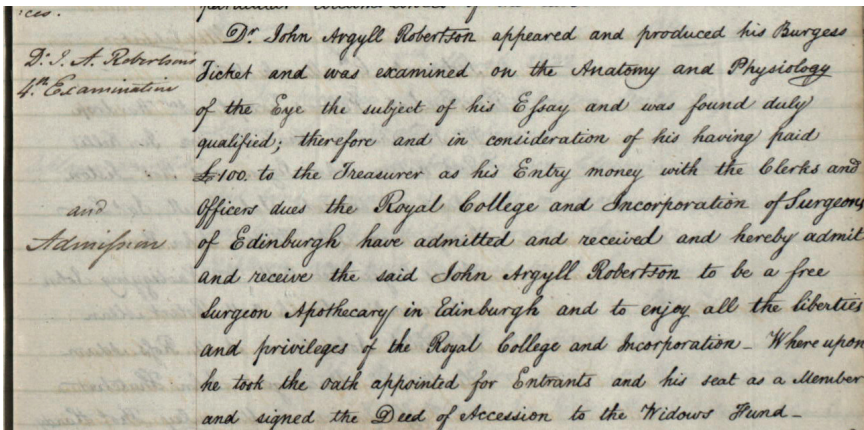 ices.
Dr. John Argyll Robertson appeared and produced his Burgess
Dr. J. A. Robertson's
Ticket and was examined on the Anatomy and Physiology
4th Examination
of the Eye the subject of his Essay and was found duly
qualified; therefore and in consideration of his having paid
£100. to the Treasurer as his Entry money with the Clerks and
and
Officers dues the Royal College and Incorporation of Surgeons
Admission
of Edinburgh have admitted and received and hereby admit
and receive the said John Argyll Robertson to be a free
Surgeon Apothecary in Edinburgh and to enjoy all the liberties
and privileges of the Royal College and Incorporation_ Where upon
he took the oath appointed for Entrants and his seat as a Member
and signed the Deed of Accession to the Widows Fund_